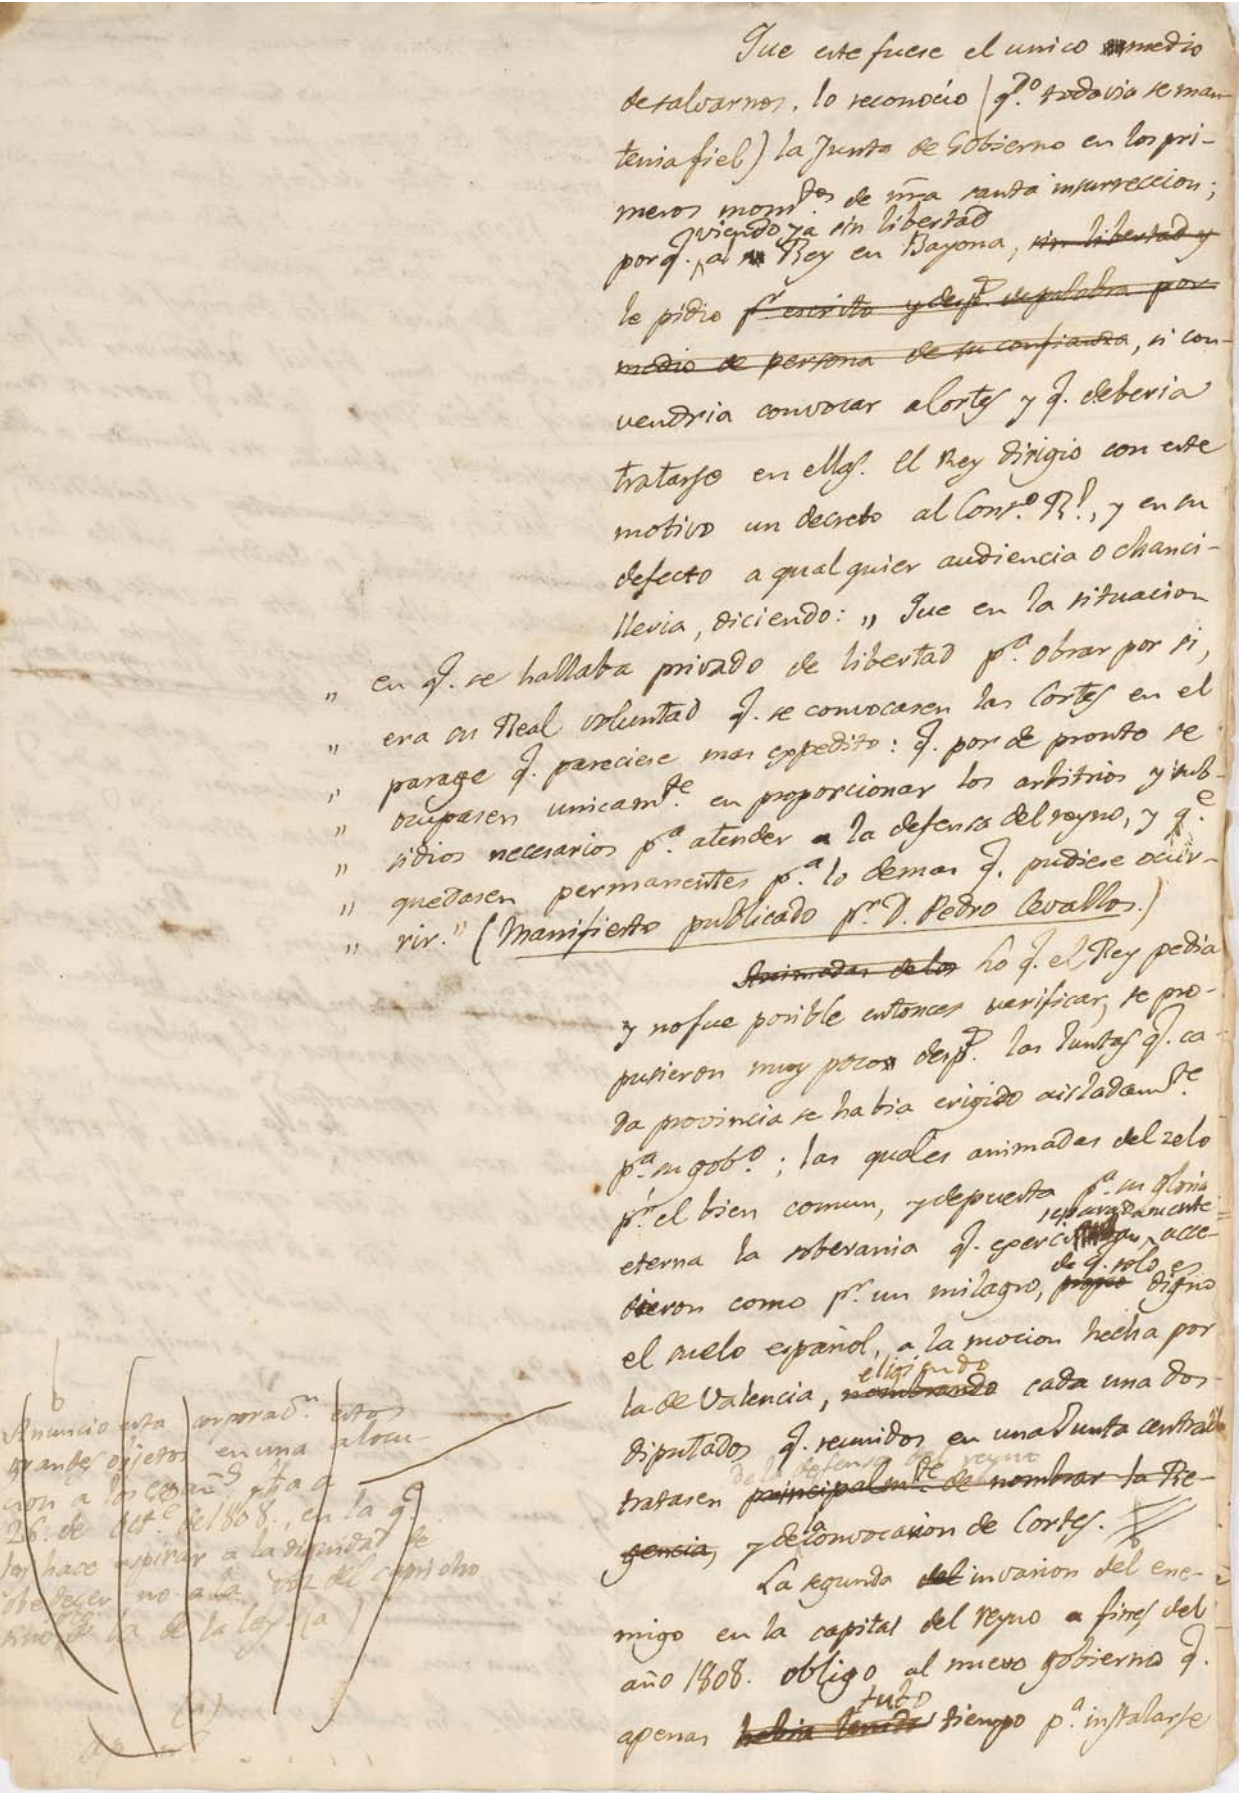 Que este fuese el unico medio
de salvarnos, lo reconocio (q.do todavia se man-
tenia fiel) la Junta de Gobierno en los pri-
meros mom.tos de nra santa insurreccion;
viendo ya sin libertad
porq. al Rey en Bayona, sin libertad y
le pidio p.r escrito y desp.s de palabra por
medio de persona de su confianza, si con-
vendria convocar a Cortes y q. deberia
tratarse en ellas. El Rey dirigio con este
motivo un decreto al Cons.o R.l, y en su
defecto a qualquier audiencia o chanci-
lleria, diciendo: „ Que en la situacion
„ en q. se hallaba privado de libertad p.a obrar por si,
„ era su Real voluntad q. se convocasen las Cortes en el
„ parage q. pareciese mas expedito: q. por de pronto se
„ ocupasen unicam.te en proporcionar los arbitrios y sub-
„ sidios necesarios p.a atender a la defensa del reyno, y q.e
„ quedasen permanentes p.a lo demas q. pudiese ocur-
„ rir.” (Manifiesto publicado p.r D. Pedro Cevallos.)
Animadas de los Lo q. el Rey pedia
y no fue posible entonces verificar, se pro-
pusieron muy poco desp.s las Juntas q. ca-
da provincia se habia erigido aisladam.te
p.a su gob.o; las quales animadas del zelo
p.r el bien comun, y depuesta p.a su gloria
separadamente
eterna la soberania q. exercian, acce-
de q. solo es
dieron como p.r un milagro, propio digno
el suelo español, a la mocion hecha por
eligiendo
la de Valencia, nombrando cada una dos
diputados q. reunidos en una Junta central
de la defensa del reyno
tratasen principalm.te de nombrar la Re-
gencia, y de convocacion de Cortes.
La segunda del invasion del ene-
migo en la capital del reyno a fines del
año 1808. obligo al nuevo gobierno q.
tubo
apenas habia tenido tiempo p.a instalarse
Anuncio esta corporac.n estos
grandes objetos en una alocu-
cion a los españ.s fha a
26. de oct.e de 1808., en la q
los hace aspirar a la dignidad de
obedecer no a la voz del capricho
sino a la de la ley (a)
(a)